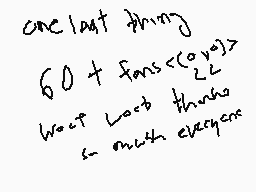 one last thing
60+ fans <(0v0)>
LL
woot woot thanks
so much everyone